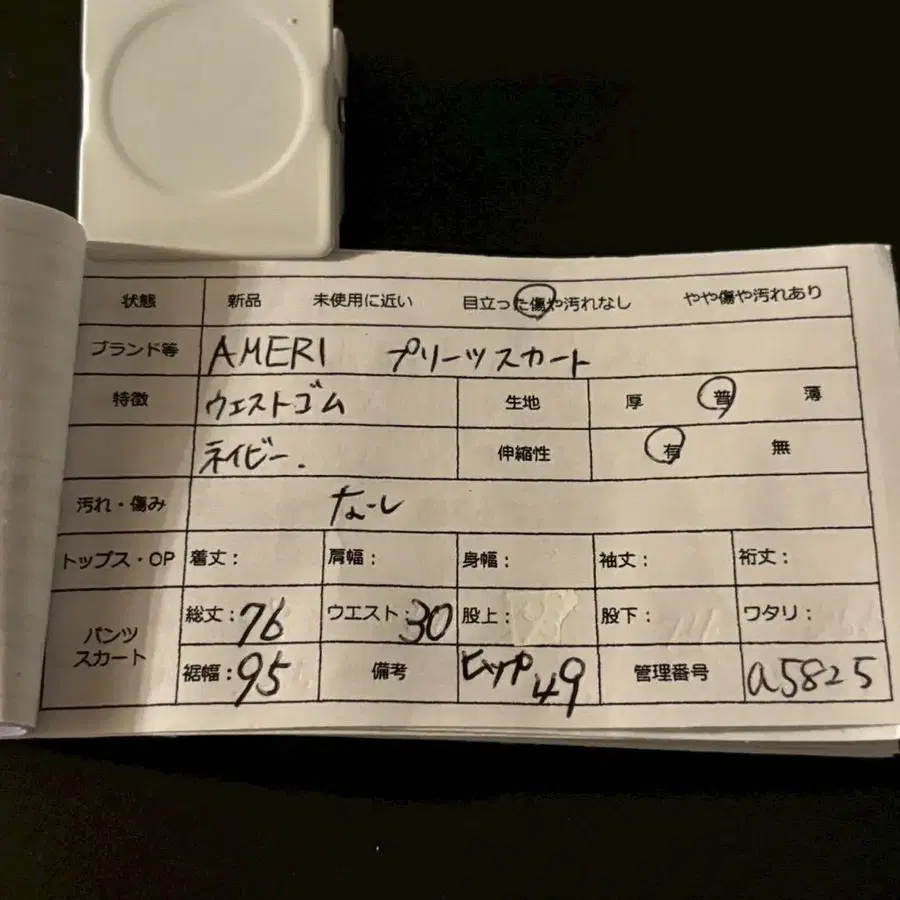 状態 新品 未使用に近い 目立った傷や汚れなし やや傷や汚れあり
ブランド等 AMERI プリーツスカート
特徴 ウエストゴム 生地 厚 普 薄
ネイビー. 伸縮性 有 無
汚れ・傷み なーし
トップス・OP 着丈: 肩幅: 身幅: 袖丈: 裄丈:
パンツ スカート
総丈:76 ウエスト:30 股上: 股下: ワタリ:
裾幅:95 備考 ヒップ49 管理番号 a5825